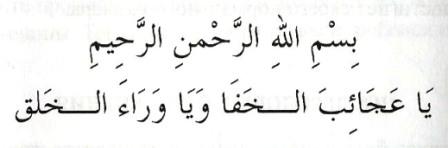 بِسْمِ اللهِ الرَّحْمنِ الرَّحِيمِ
يَا عَجَائِبَ الـــخَفَا وَيَا وَرَاءَ الـــخَلق